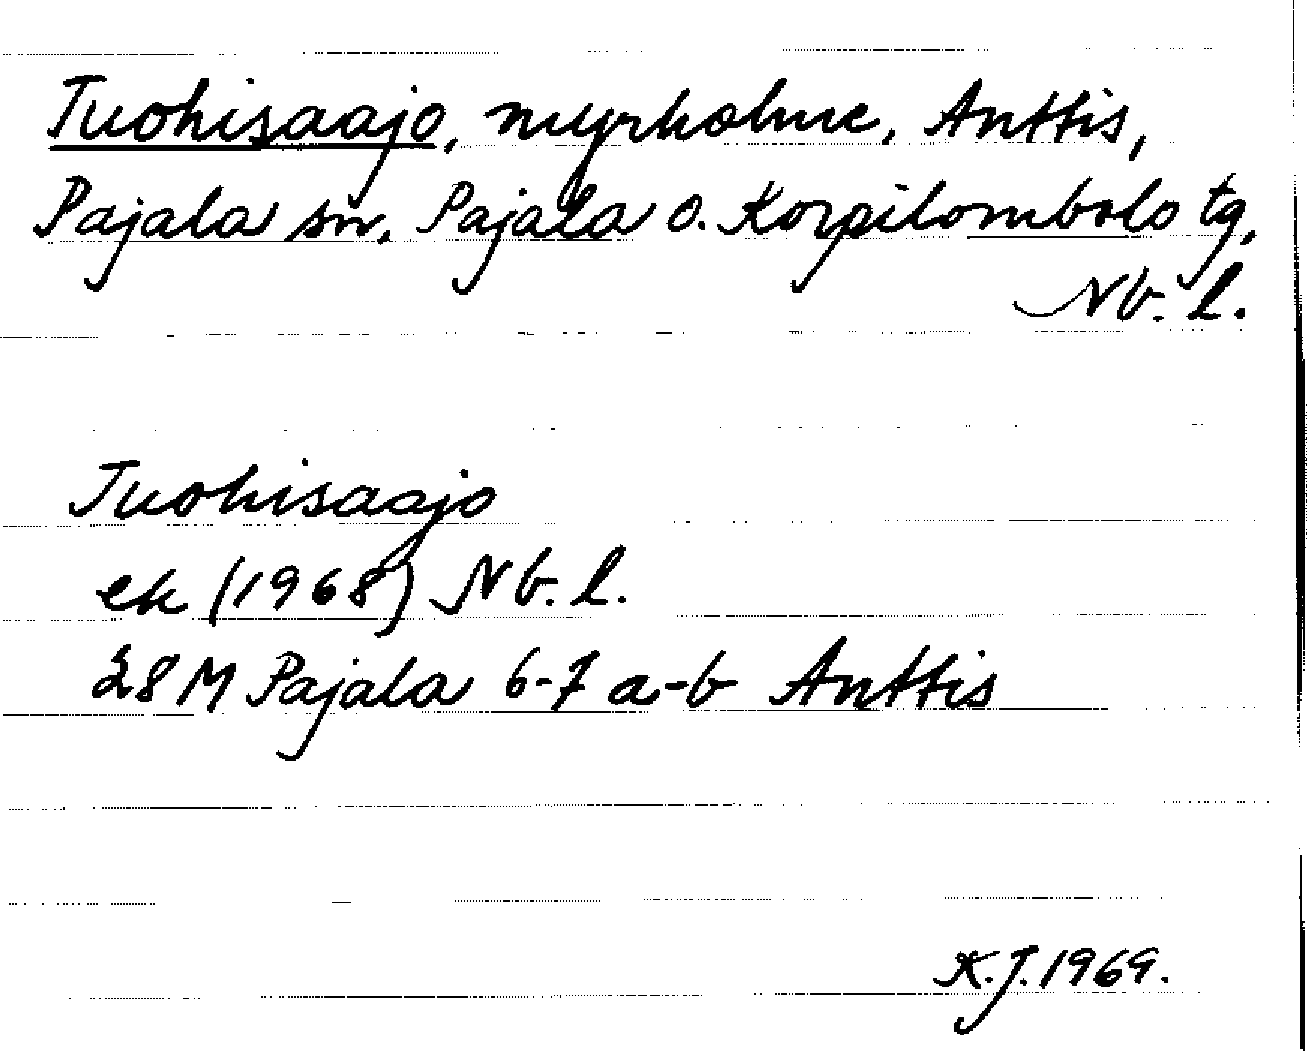 Tuohisaajo, myrholme, Anttis,
Pajala sn, Pajala o. Korpilombolo tg,
Nb. l.
Tuohisaajo
ek (1968) Nb. l.
28 M Pajala 6-7 a-b Anttis
K.J. 1969.